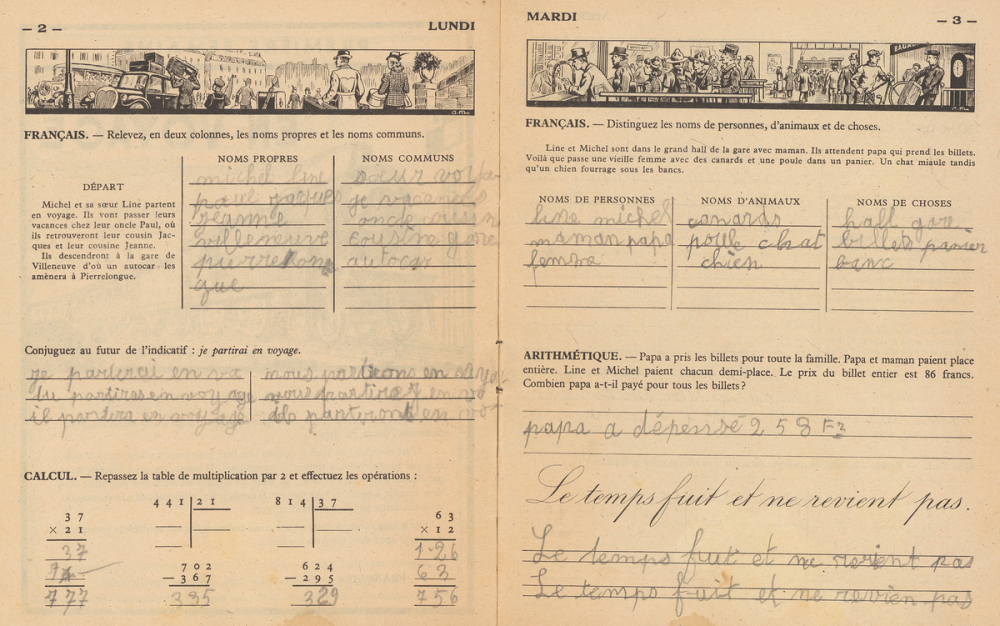 — 2 —
LUNDI
FRANÇAIS. — Relevez, en deux colonnes, les noms propres et les noms communs.
DÉPART
Michel et sa sœur Line partent
en voyage. Ils vont passer leurs
vacances chez leur oncle Paul, où
ils retrouveront leur cousin Jac-
ques et leur cousine Jeanne.
Ils descendront à la gare de
Villeneuve d'où un autocar les
amènera à Pierrelongue.
NOMS PROPRES
michel line
paul jacques
jeanne
villeneuve
pierrelong
que
NOMS COMMUNS
sœur
vacances
oncle cousin
cousine gare
autocar
Conjuguez au futur de l'indicatif : je partirai en voyage.
je partirai en
tu partiras en voyage
il partira en voyage
nous partirons en
vous partirez en
ils partiront en
CALCUL. — Repassez la table de multiplication par 2 et effectuez les opérations :
37
× 21
37
777
441 | 21
814 | 37
702
— 367
335
624
— 295
329
63
× 12
126
63
756
MARDI
— 3 —
FRANÇAIS. — Distinguez les noms de personnes, d'animaux et de choses.
Line et Michel sont dans le grand hall de la gare avec maman. Ils attendent papa qui prend les billets.
Voilà que passe une vieille femme avec des canards et une poule dans un panier. Un chat miaule tandis
qu'un chien fourrage sous les bancs.
NOMS DE PERSONNES
line michel
maman papa
femme
NOMS D'ANIMAUX
canards
poule chat
chien
NOMS DE CHOSES
hall gare
billets panier
banc
ARITHMÉTIQUE. — Papa a pris les billets pour toute la famille. Papa et maman paient place
entière. Line et Michel paient chacun demi-place. Le prix du billet entier est 86 francs.
Combien papa a-t-il payé pour tous les billets?
papa a dépensé 258 F
Le temps fuit et ne revient pas.
Le temps fuit et ne revient pas
Le temps fuit et ne revien pas